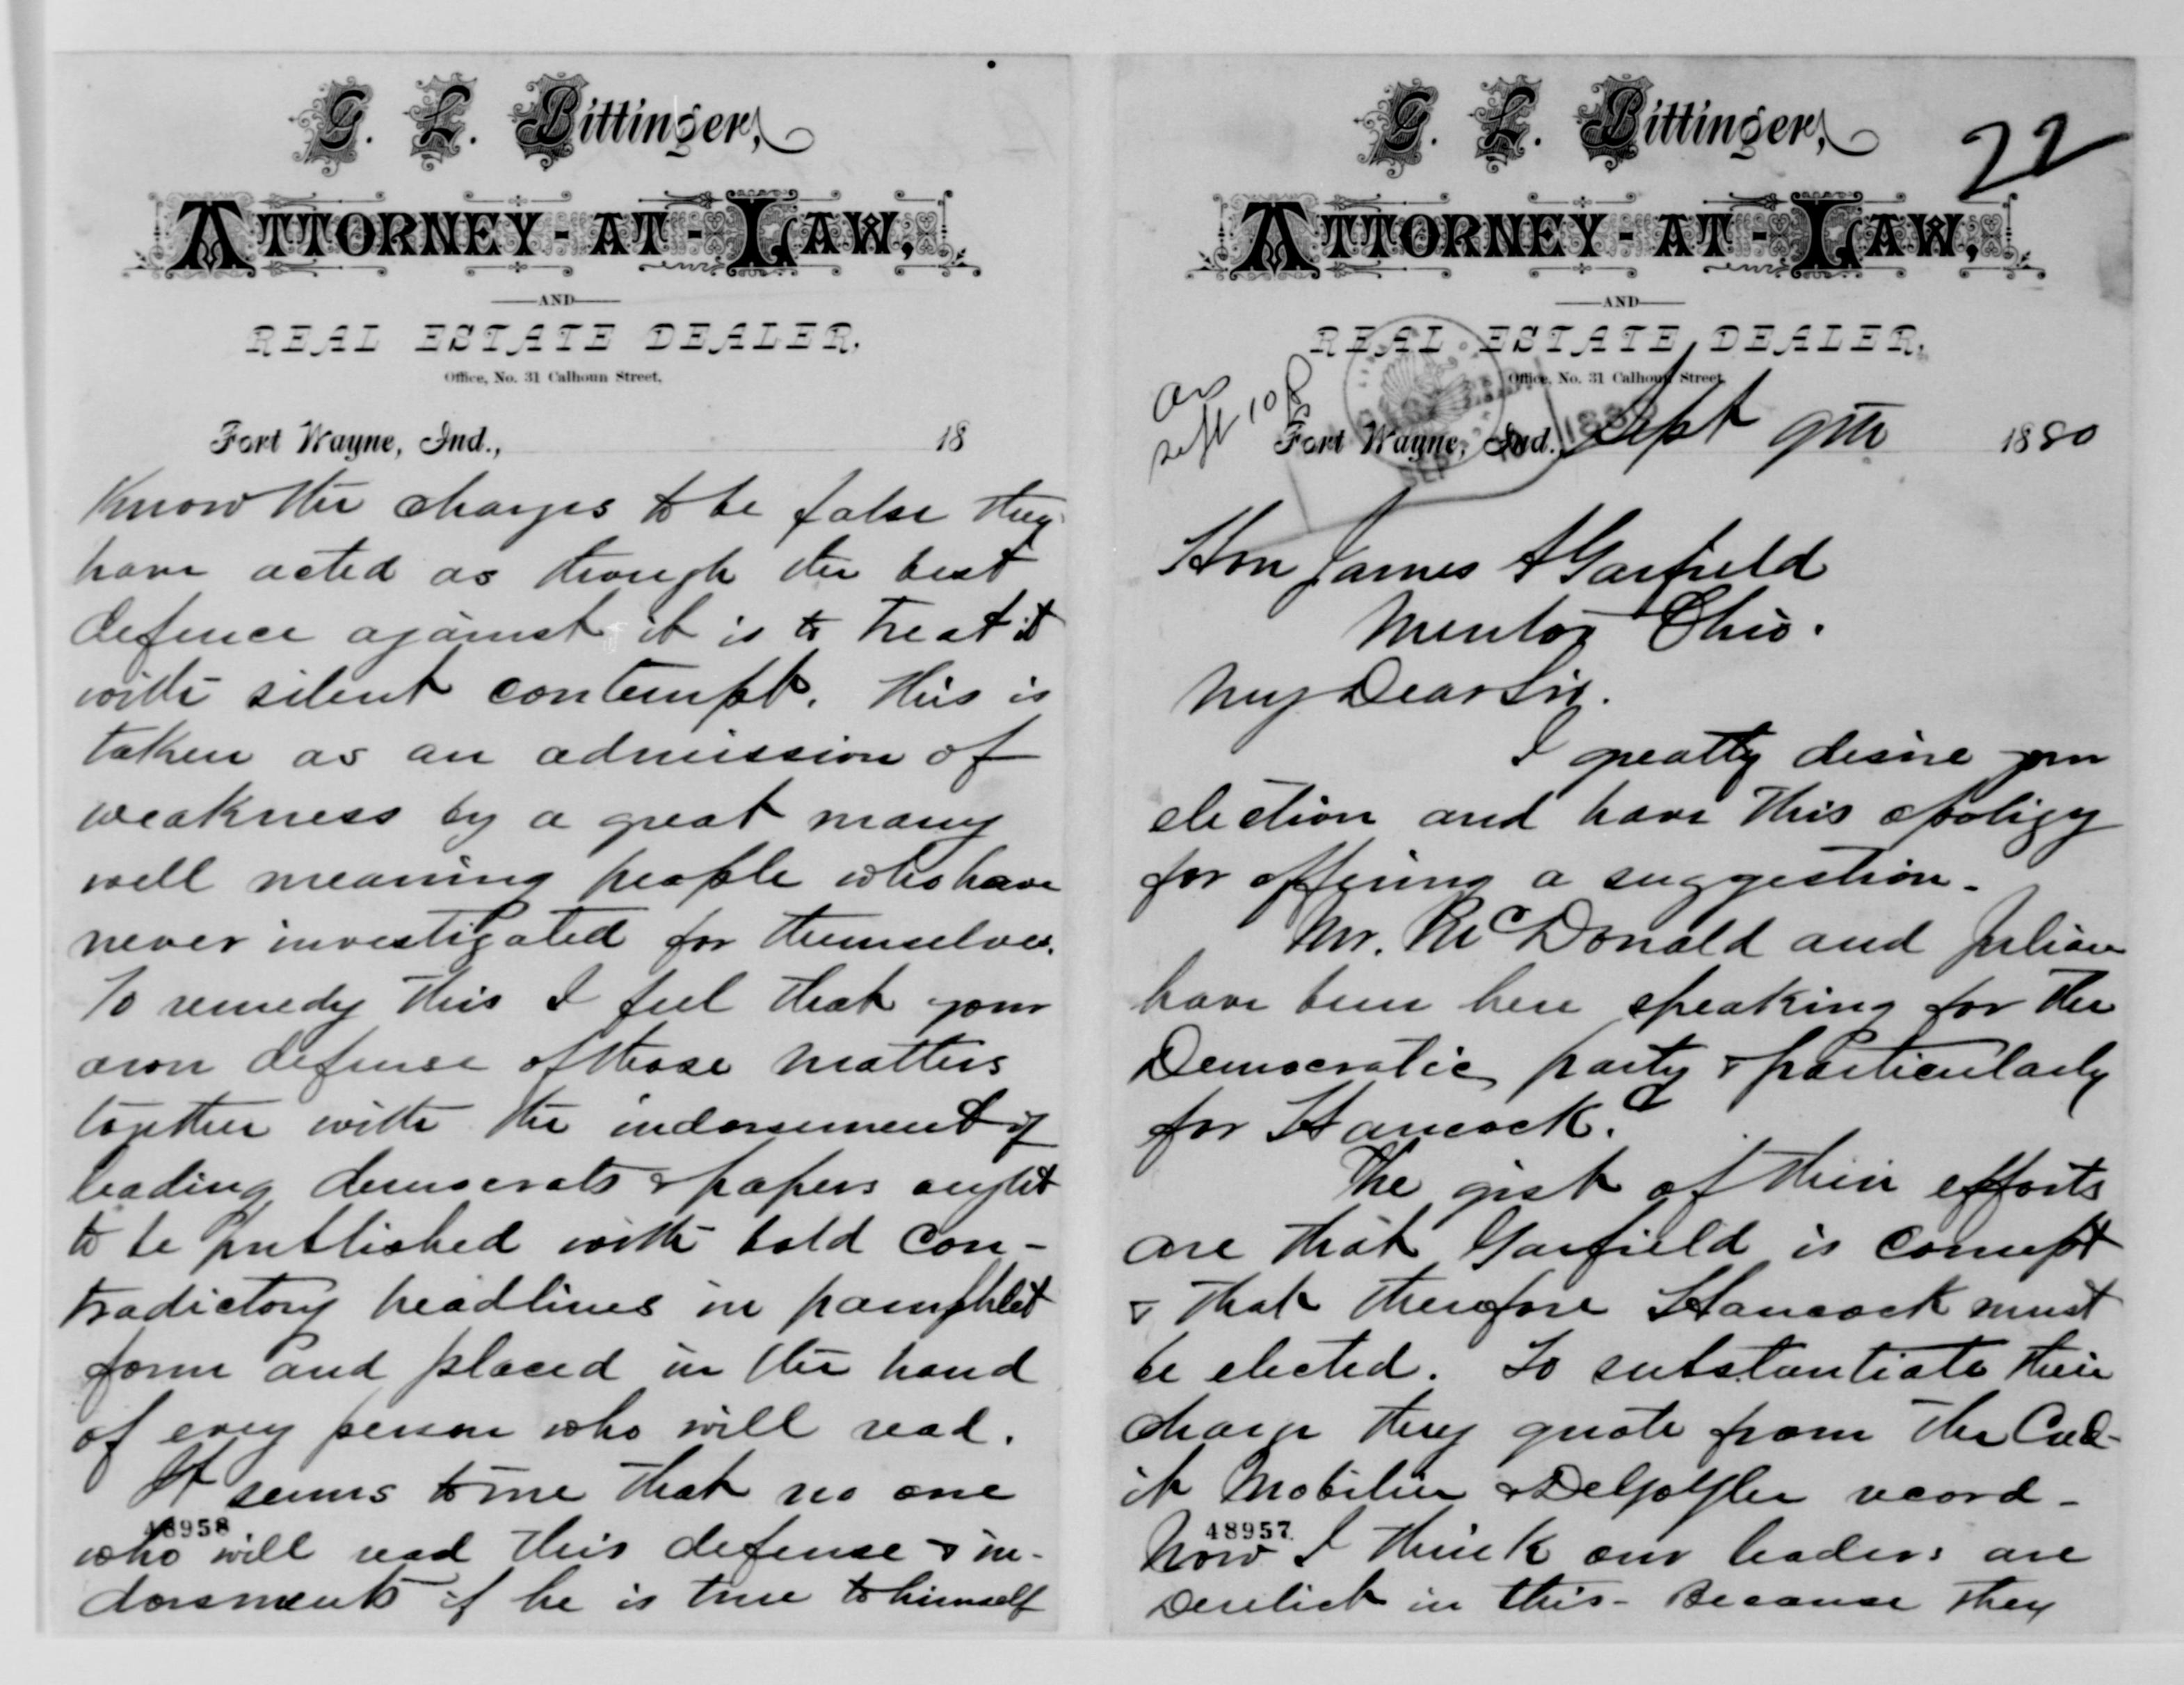 G. L. Bittinger,
22
ATTORNEY-AT-LAW,
AND
REAL ESTATE DEALER,
Office, No. 31 Calhoun Street,
Sept 10
Fort Wayne, Ind., Sept 9th 1880
Hon James A Garfield
Mentor Ohio.
My Dear Sir.
I greatly desire your
election and have this apoligy
for offering a suggestion.
Mr. McDonald and Julian
have been here speaking for the
Democratic party & particularly
for Hancock.
The gist of their efforts
are that Garfield is corrupt
& that therefore Hancock must
be elected. To substantiate their
charge they quote from the Cred-
it Mobilier & DeGolyer record -
48957
Now I think our leaders are
Derelict in this - Because they
G. L. Bittinger,
ATTORNEY-AT-LAW,
AND
REAL ESTATE DEALER,
Office, No. 31 Calhoun Street,
Fort Wayne, Ind., 18
Know the charges to be false they
have acted as though the best
defence against it is to treat it
with silent contempt. This is
taken as an admission of
weakness by a great many
well meaning people who have
never investigated for themselves.
To remedy this I feel that your
own defense of those matters
together with the indorsement of
leading democrats & papers ought
to be published with bold con-
tradictory headlines in pamphlet
form and placed in the hand
of every person who will read.
It seems to me that no one
48958
who will read this defense & in-
dorsments if he is true to himself